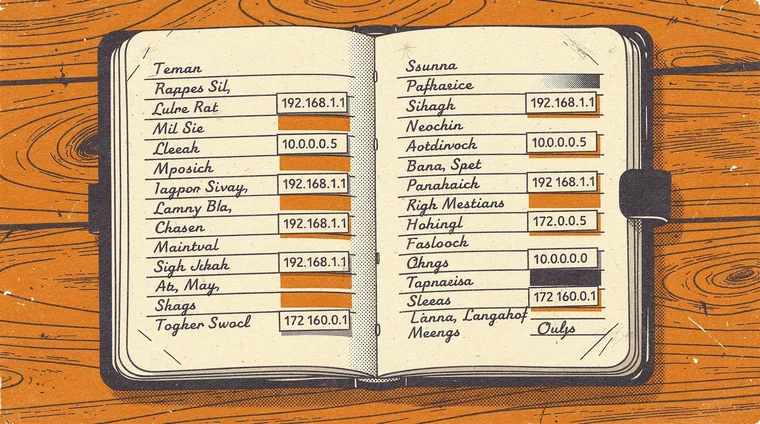 Teman
Rappes Sil,
Lulre Rat 192.168.1.1
Mil Sie
Lleeah 10.0.0.0.5
Mposich
Iagpor Sivay, 192.168.1.1
Lamny Bla,
Chasen 192.168.1.1
Maintval
Sigh Jtkah 192.168.1.1
Atı, May,
Skags
Togker Swocl 172 160.0.1
Ssunna
Pafharice
Sihagh 192.168.1.1
Neochin
Aotdivoch 10.0.0.0.5
Bana, Spet
Panahaich 192 168.1.1
Righ Mestians
Hohingl 172.0.0.5
Faslooch
Okngs 10.0.0.0.0
Tapnaeisa
Sleeas 172 160.0.1
Lanna, Langahof
Meengs Oulys